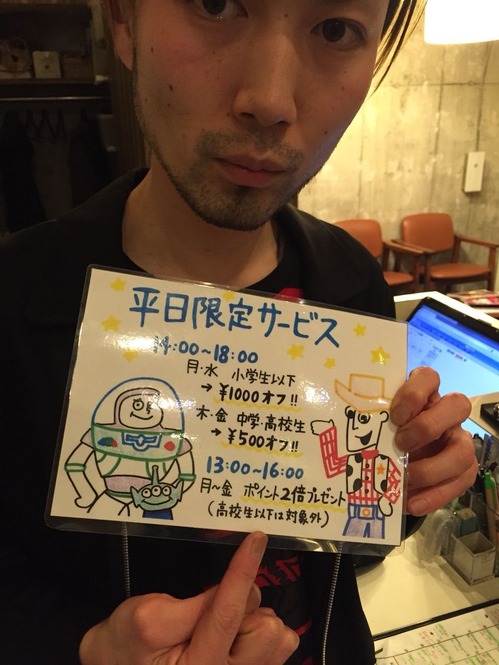 平日限定サービス
14:00〜18:00
月・水 小学生以下
→ ¥1000オフ!!
木・金 中学・高校生
→ ¥500オフ!!
13:00〜16:00
月〜金 ポイント2倍プレゼント
(高校生以下は対象外)